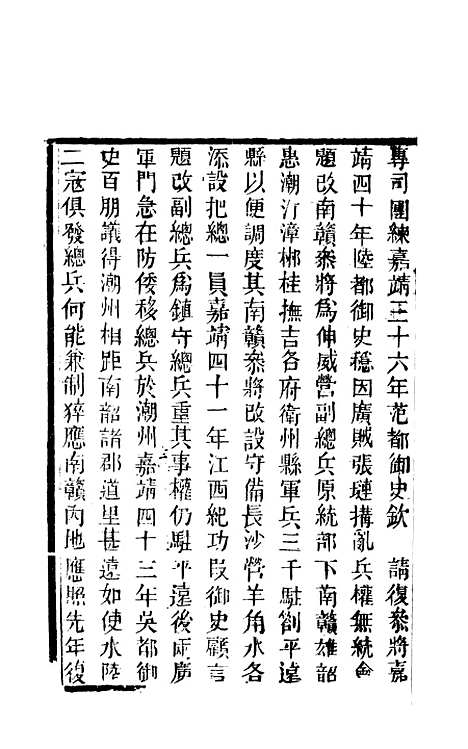 專司團練嘉靖三十六年范都御史欽　請復叅將嘉
靖四十年陸都御史穩因廣賊張璉搆亂兵權無統僉
題改南贛叅將爲伸威營副總兵原統部下南贛雄韶
惠潮汀漳郴桂撫吉各府衛州縣軍兵三千駐劄平遠
縣以便調度其南贛叅將改設守備長沙營羊角水各
添設把總一員嘉靖四十一年江西紀功段御史顧言
題改副總兵爲鎮守總兵重其事權仍駐平遠後兩廣
軍門急在防倭移總兵於潮州嘉靖四十三年吳都御
史百朋議得潮州相距南韶諸郡道里甚遠如使水陸
二寇俱發總兵何能兼制猝應南贛內地應照先年復